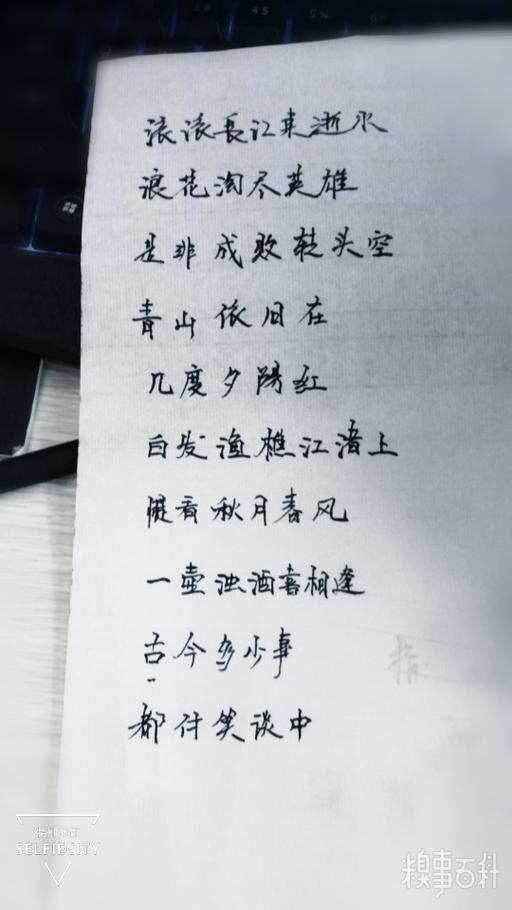 滚滚長江東逝水
浪花淘尽英雄
是非成败转头空
青山依旧在
几度夕陽红
白发渔樵江渚上
惯看秋月春风
一壶浊酒喜相逢
古今多少事
都付笑谈中
SELFIECITY
糗事百科